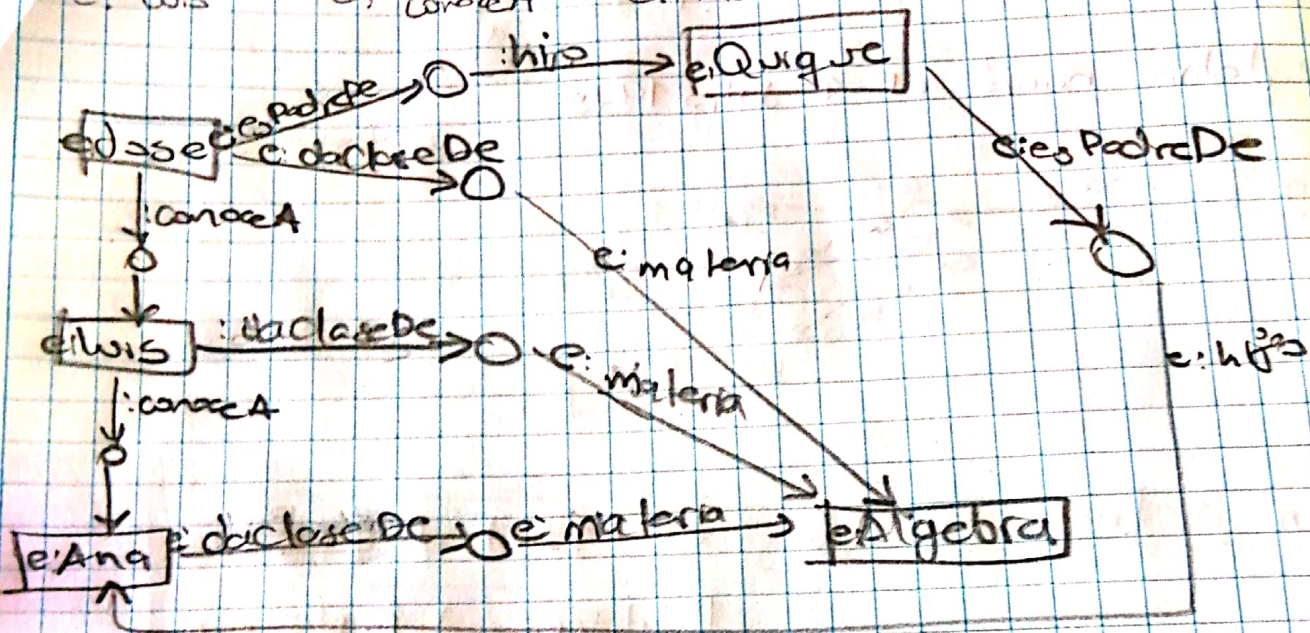 :hijo
e:Quique
e:esPadreDe
e:Jose
e:daclaseDe
e:esPadreDe
:conoceA
e:materia
e:luis
:daclaseDe
e:
materia
:conoceA
e:Ana
e:daclaseDe
e:materia
e:Algebra